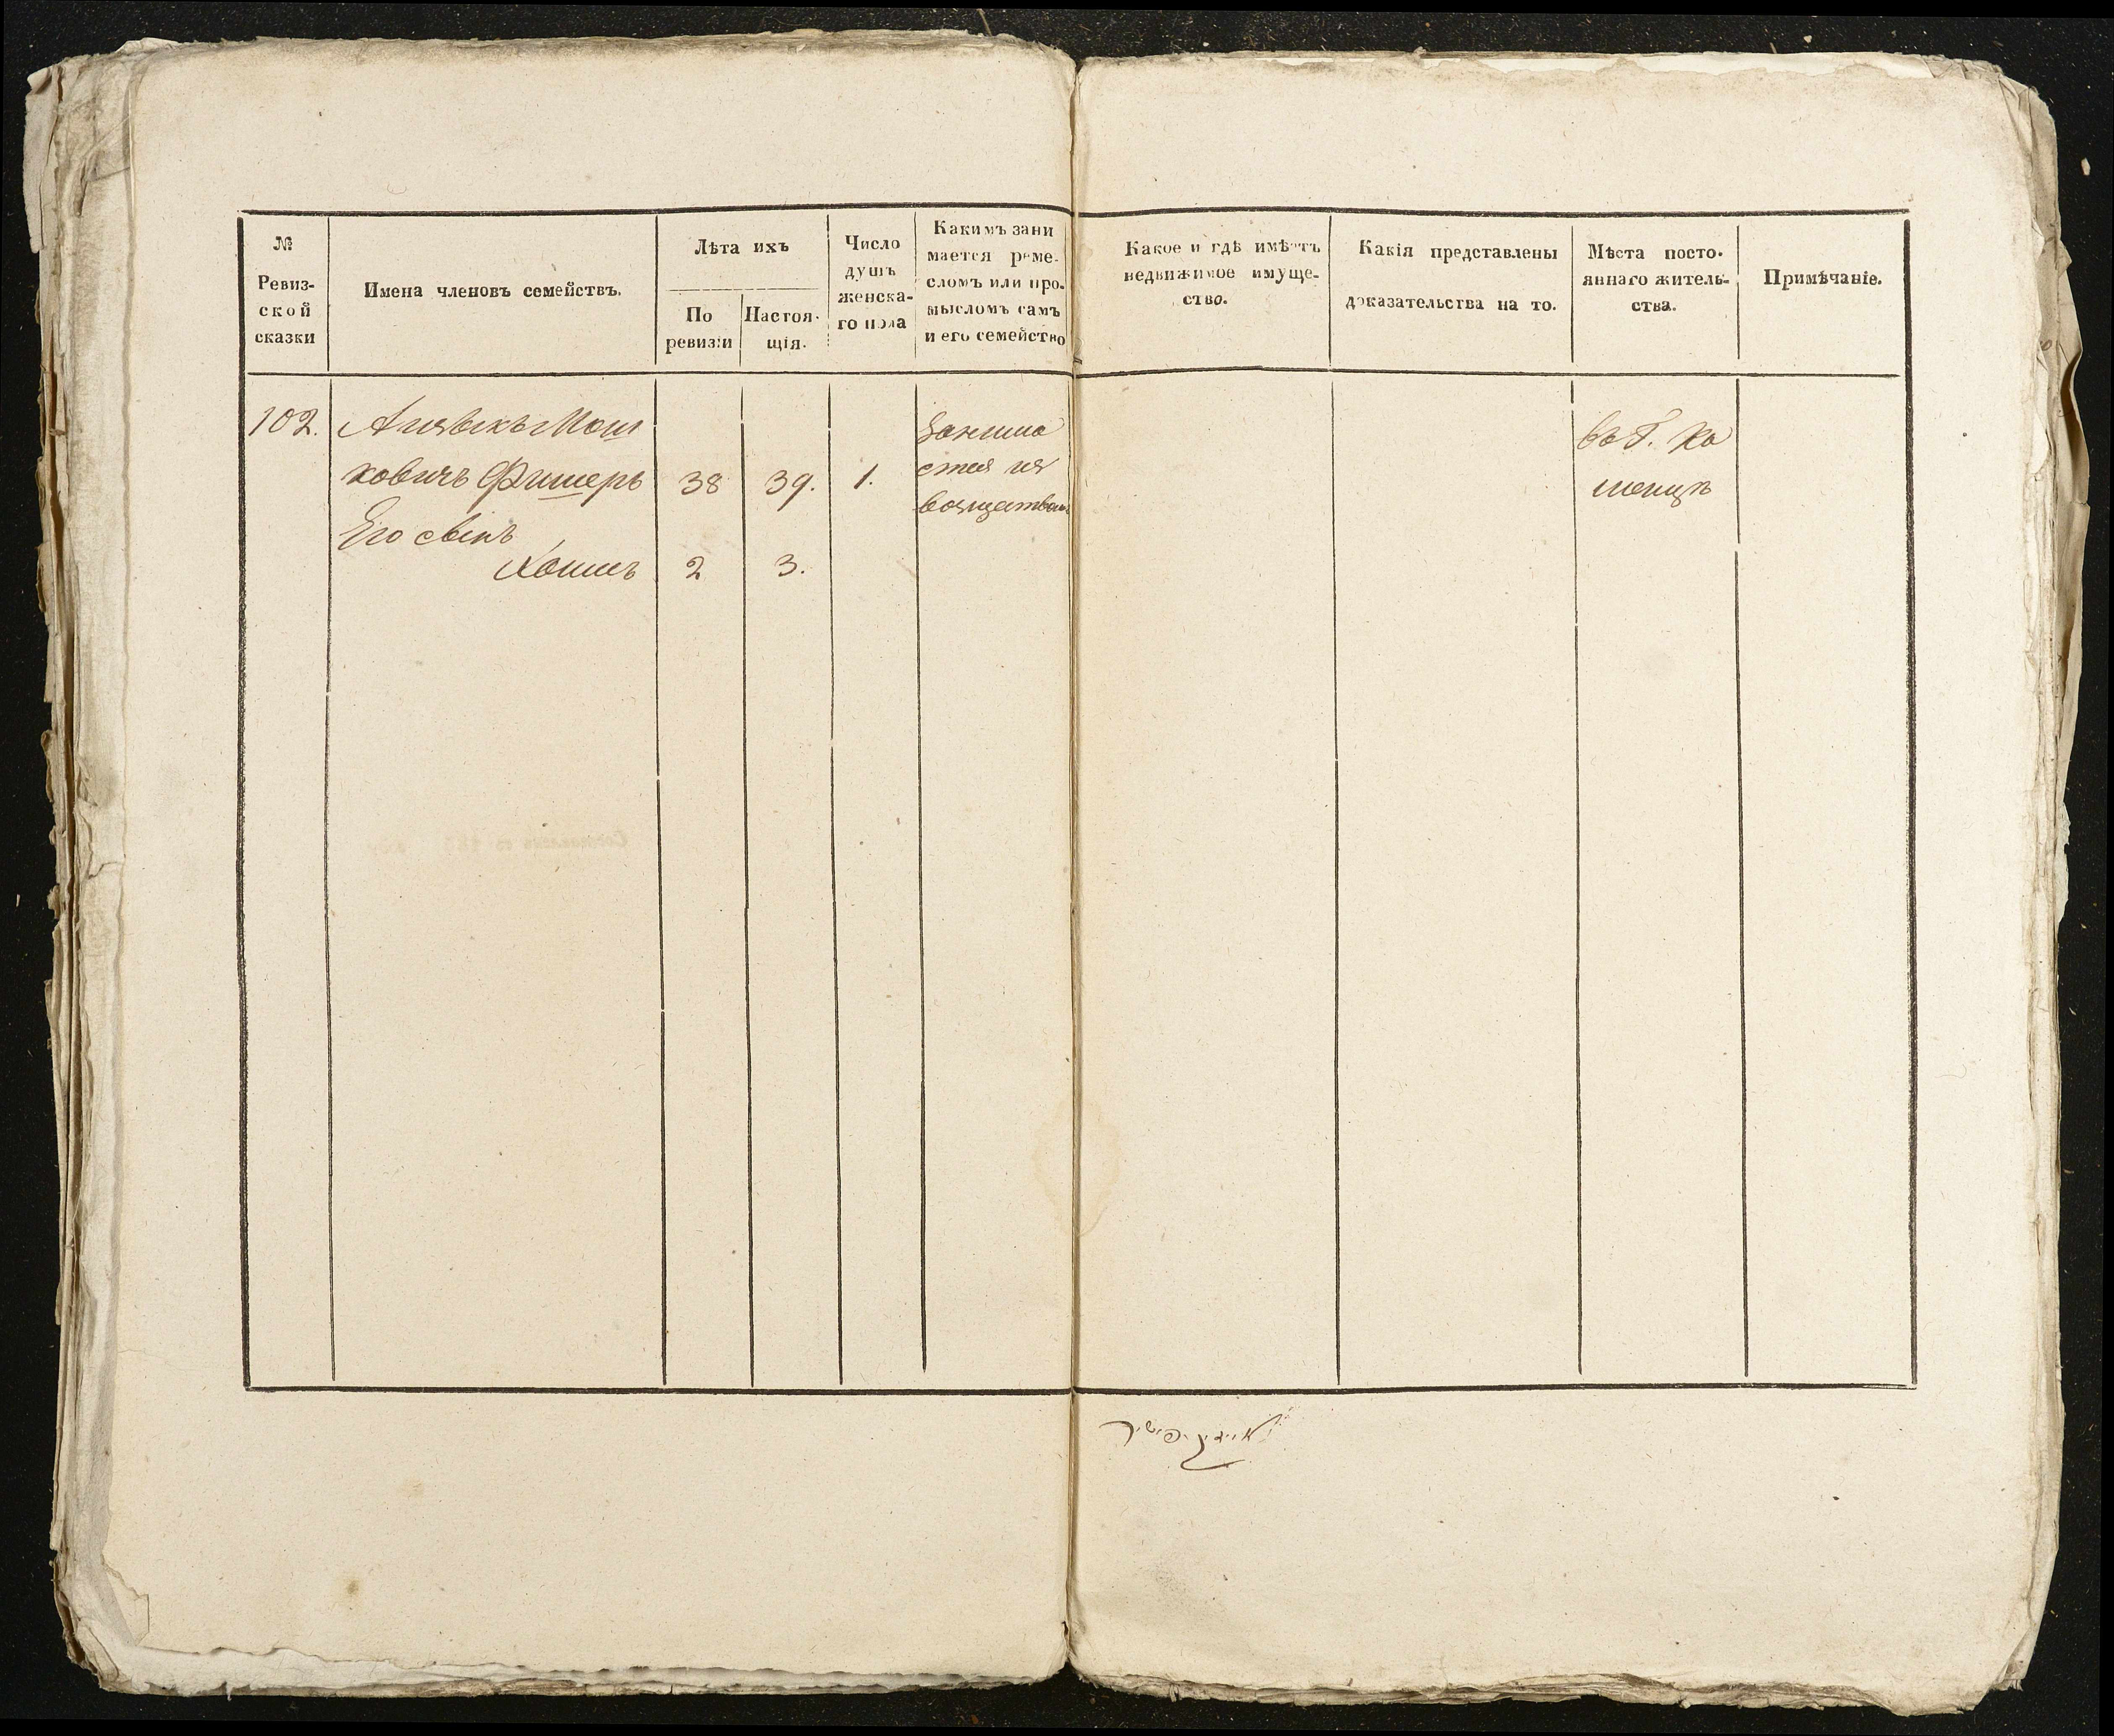 №
Ревиз-
ской
сказки
Имена членовъ семействъ.
Лѣта ихъ
По
ревизіи
Настоя-
щія.
Число
душъ
женска-
го пола
Какимъ зани
мается реме-
сломъ или про-
мысломъ самъ
и его семейство
Какое и гдѣ имѣетъ
недвижимое имуще-
ство.
Какія представлены
доказательства на то.
Мѣста посто-
яннаго житель-
ства.
Примѣчаніе.
102. Мош
ковичъ Фишеръ 38 39. 1.
Его сынъ
Хаимъ 2 3.
Занима
ется из
возщество
въ Г. Ка
менцѣ
פישר